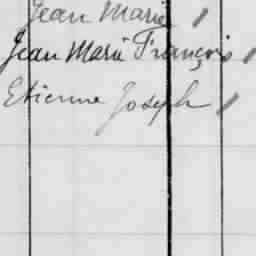 Jean Marie "
Jean Marie François "
Etienne Joseph "